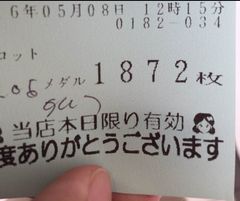 6年05月08日 12時15分
0182-034
ロット
メダル 1872枚
当店本日限り有効
度ありがとうございます